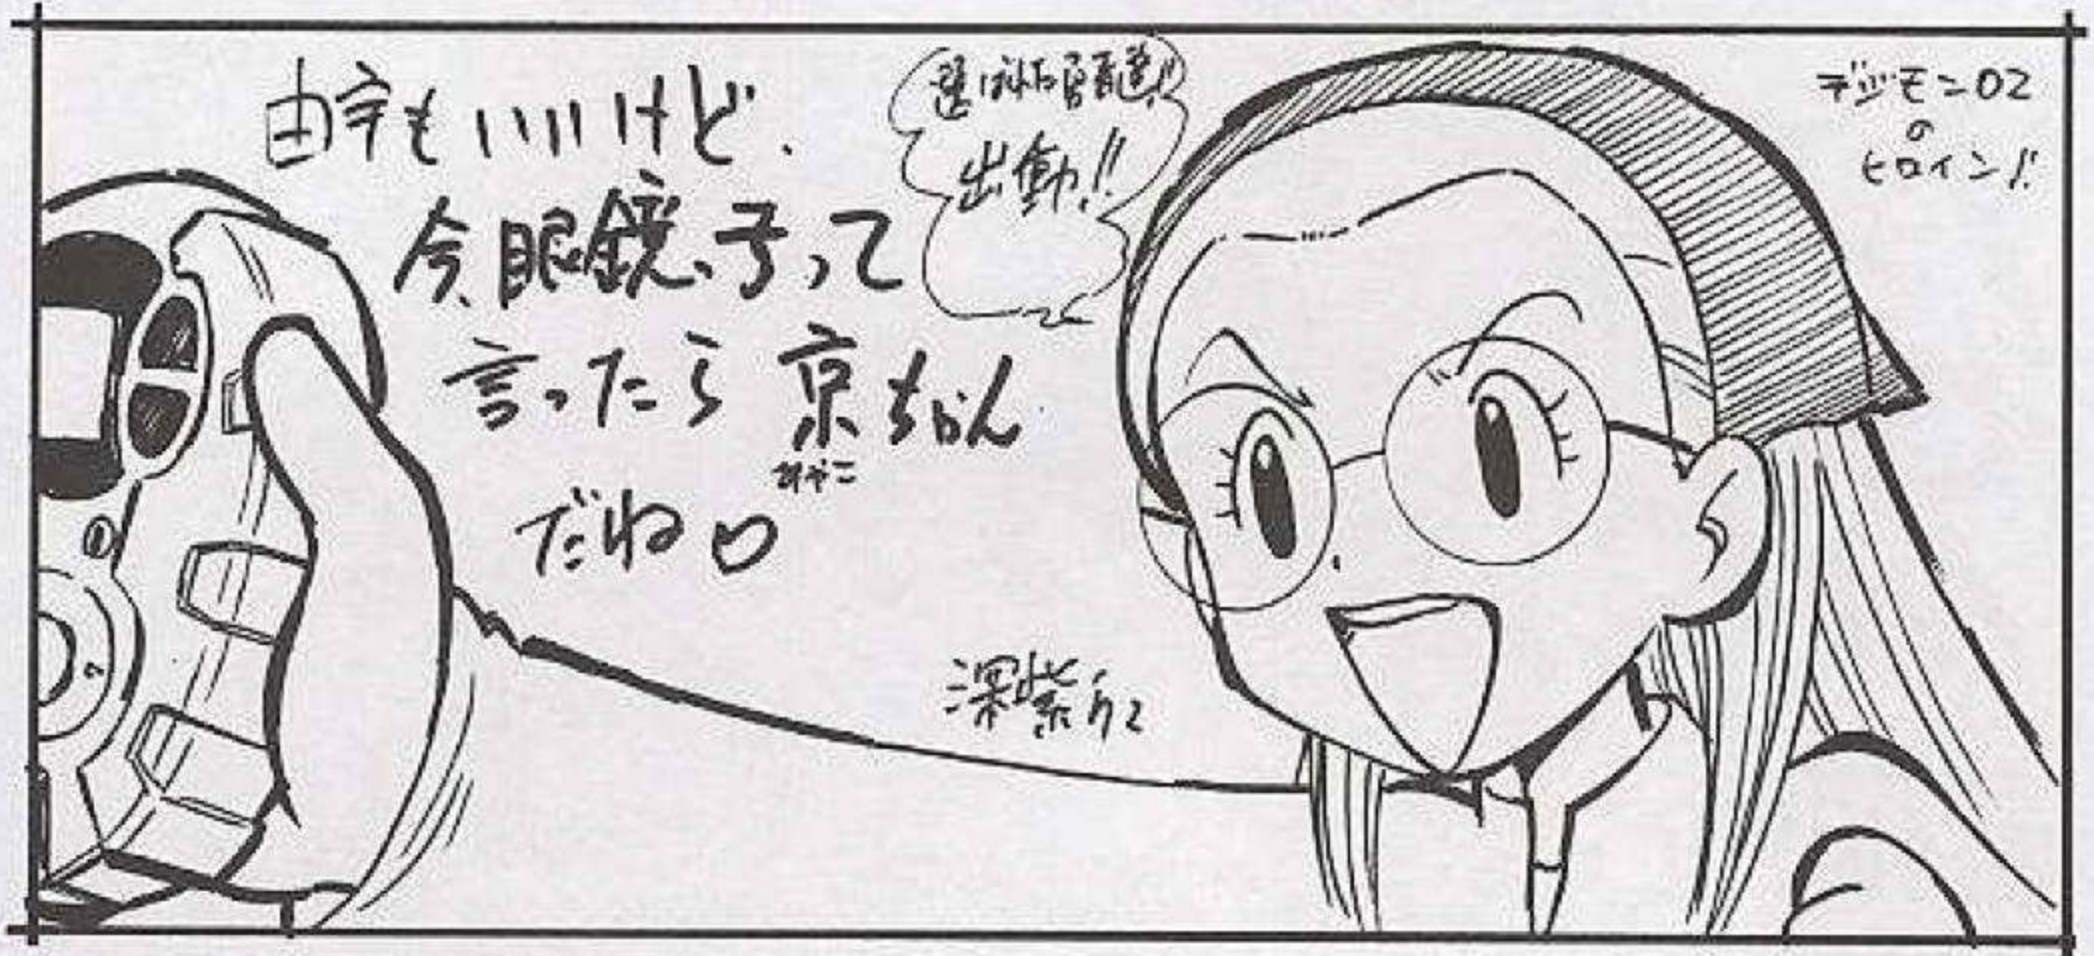 由宇もいいけど、
今、眼鏡っ子って
言ったら京ちゃん
みやこ
だね
選ばれし子供達!!
出動!!
デジモン02
の
ヒロイン!!
深紫